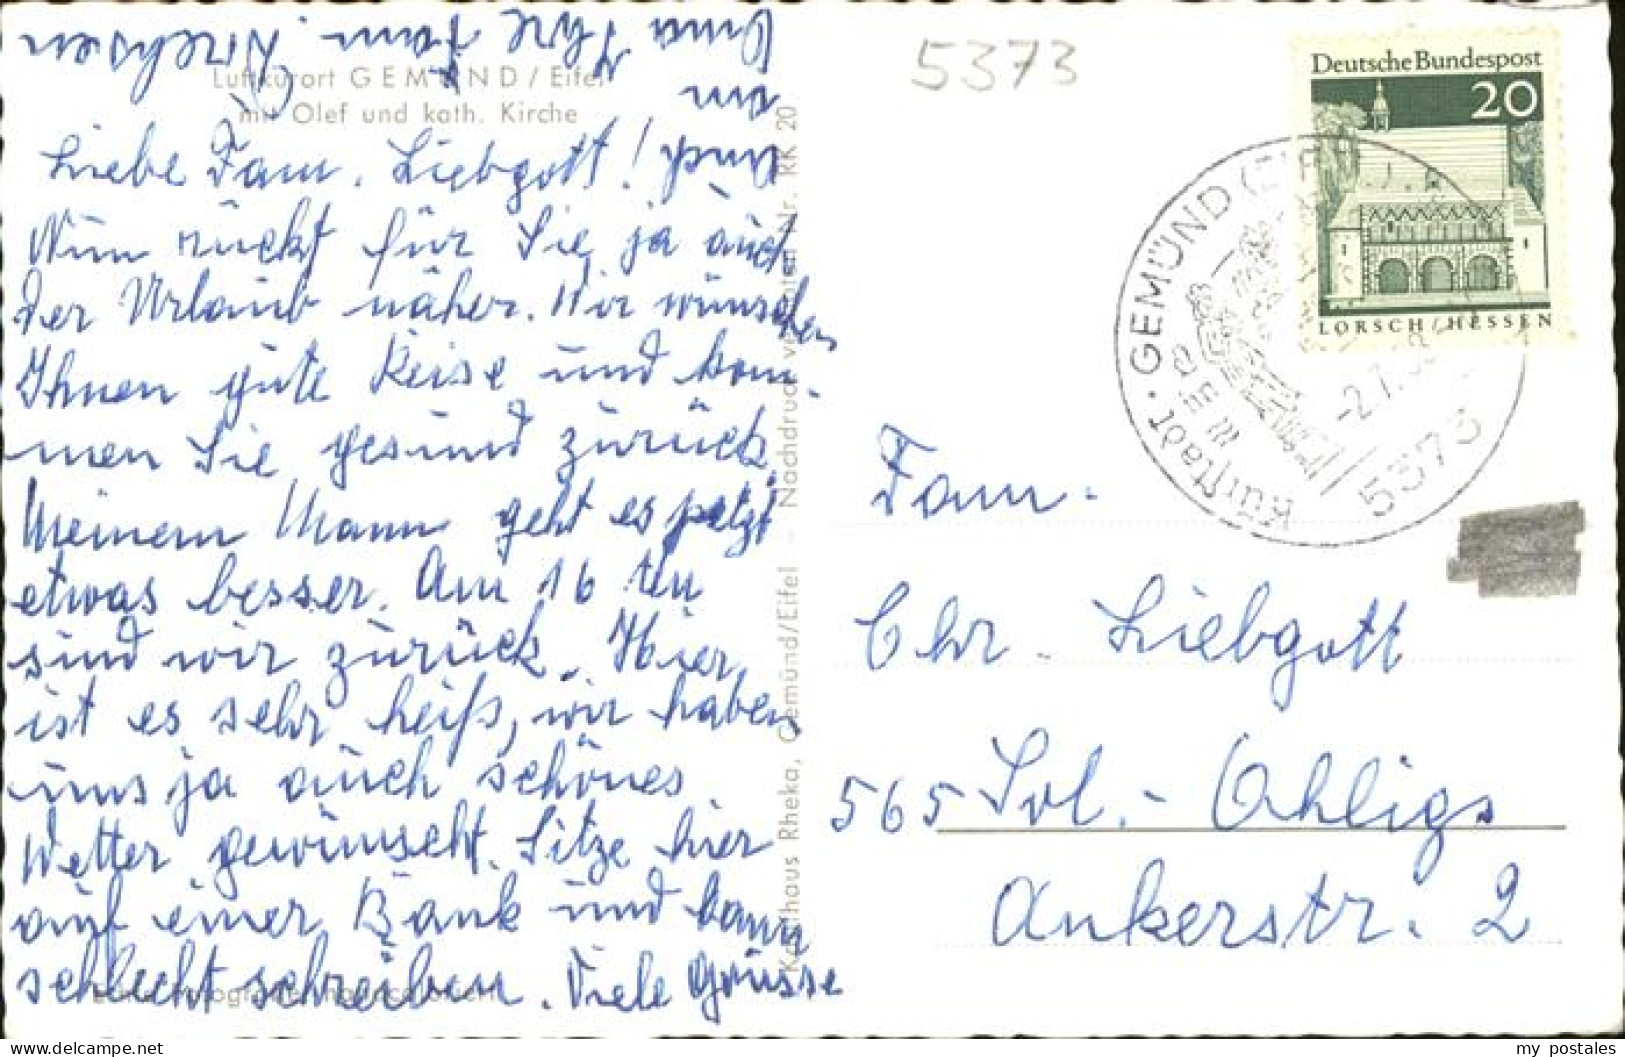 Luftkurort GEMÜND / Eifel
mit Olef und kath. Kirche
Liebe Fam. Liebgott!
Nun rückt für Sie ja auch
der Urlaub näher. Wir wünschen
Ihnen gute Reise und kom-
men Sie gesund zurück.
Meinem Mann geht es jetzt
etwas besser. Am 16 ten
sind wir zurück. Hier
ist es sehr heiß, wir haben
uns ja auch schönes
Wetter gewünscht. Sitze hier
auf einer Bank und kann
schlecht schreiben. Viele Grüsse
auch
von
Ihre Fam.
Kaufhaus Rheka, Gemünd/Eifel - Nachdruck verboten Nr. RK 20
5373
Deutsche Bundespost
20
LORSCH/HESSEN
GEMÜND (EIFEL)
Kurstadt
5373
Fam.
Chr. Liebgott
565 Sol.- Ohligs
Ankerstr. 2
my postales